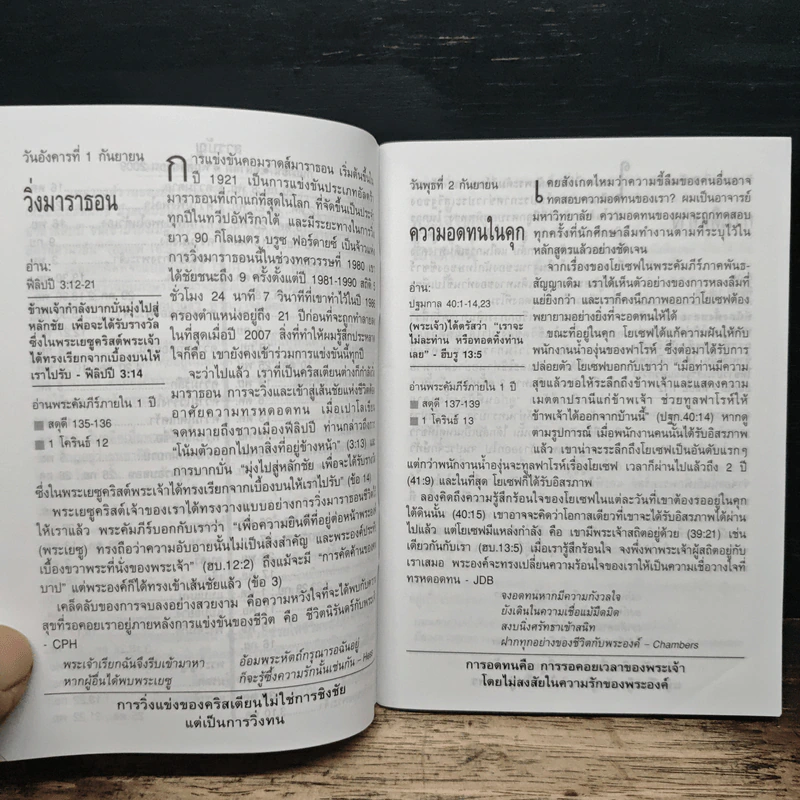 วันอังคารที่ 1 กันยายน
วิ่งมาราธอน
อ่าน:
ฟีลิปปี 3:12-21
ข้าพเจ้ากำลังบากบั่นมุ่งไปสู่
หลักชัย เพื่อจะได้รับรางวัล
ซึ่งในพระเยซูคริสต์พระเจ้า
ได้ทรงเรียกจากเบื้องบนให้
เราไปรับ - ฟีลิปปี 3:14
อ่านพระคัมภีร์ภายใน 1 ปี
สดุดี 135-136
1 โครินธ์ 12
การแข่งขันคอมราดส์มาราธอน เริ่มต้นขึ้นใน
ปี 1921 เป็นการแข่งขันประเภทอัลตร้า
มาราธอนที่เก่าแก่ที่สุดในโลก ที่จัดขึ้นเป็นประจำ
ทุกปีในทวีปอัฟริกาใต้ และมีระยะทางในการวิ่ง
ยาว 90 กิโลเมตร บรูซ ฟอร์ดายซ์ เป็นจ้าวแห่ง
การวิ่งมาราธอนนี้ในช่วงทศวรรษที่ 1980 เขา
ได้ชัยชนะถึง 9 ครั้งตั้งแต่ปี 1981-1990 สถิติ 5
ชั่วโมง 24 นาที 7 วินาทีที่เขาทำไว้ในปี 1986
ครองตำแหน่งอยู่ถึง 21 ปีก่อนที่จะถูกทำลายลง
ในที่สุดเมื่อปี 2007 สิ่งที่ทำให้ผมรู้สึกประหลาด
ใจก็คือ เขายังคงเข้าร่วมการแข่งขันนี้ทุกปี
จะว่าไปแล้ว เราที่เป็นคริสเตียนต่างก็กำลังวิ่ง
มาราธอน การจะวิ่งและเข้าสู่เส้นชัยแห่งชีวิตต้อง
อาศัยความทรหดอดทน เมื่อเปาโลเขียน
จดหมายถึงชาวเมืองฟีลิปปี ท่านกล่าวถึงการ
"โน้มตัวออกไปหาสิ่งที่อยู่ข้างหน้า" (3:13) และ
การบากบั่น "มุ่งไปสู่หลักชัย เพื่อจะได้รับรางวัล
ซึ่งในพระเยซูคริสต์พระเจ้าได้ทรงเรียกจากเบื้องบนให้เราไปรับ" (ข้อ 14)
พระเยซูคริสต์เจ้าของเราได้ทรงวางแบบอย่างการวิ่งมาราธอนชีวิตไว้
ให้เราแล้ว พระคัมภีร์บอกกับเราว่า "เพื่อความยินดีที่อยู่ต่อหน้าพระองค์
(พระเยซู) ทรงถือว่าความอับอายนั้นไม่เป็นสิ่งสำคัญ และพระองค์ประทับ
เบื้องขวาพระที่นั่งของพระเจ้า" (ฮบ.12:2) ถึงแม้จะมี "การคัดค้านของคน
บาป" แต่พระองค์ก็ได้ทรงเข้าเส้นชัยแล้ว (ข้อ 3)
เคล็ดลับของการจบลงอย่างสวยงาม คือความหวังใจที่จะได้พบกับความ
สุขที่รอคอยเราอยู่ภายหลังการแข่งขันของชีวิต คือ ชีวิตนิรันดร์กับพระเจ้า
- CPH
พระเจ้าเรียกฉันจึงรีบเข้ามาหา
หากผู้อื่นได้พบพระเยซู
อ้อมพระหัตถ์กรุณารอฉันอยู่
ก็จะรู้ซึ่งความรักนั้นเช่นกัน -
การวิ่งแข่งของคริสเตียนไม่ใช่การชิงชัย
แต่เป็นการวิ่งทน
วันพุธที่ 2 กันยายน
ความอดทนในคุก
อ่าน:
ปฐมกาล 40:1-14,23
(พระเจ้า)ได้ตรัสว่า "เราจะ
ไม่ละท่าน หรือทอดทิ้งท่าน
เลย" - ฮีบรู 13:5
อ่านพระคัมภีร์ภายใน 1 ปี
สดุดี 137-139
1 โครินธ์ 13
เคยสังเกตไหมว่าความขี้ลืมของคนอื่นอาจ
ทดสอบความอดทนของเรา? ผมเป็นอาจารย์
มหาวิทยาลัย ความอดทนของผมจะถูกทดสอบ
ทุกครั้งที่นักศึกษาลืมทำงานตามที่ระบุไว้ใน
หลักสูตรแล้วอย่างชัดเจน
จากเรื่องของโยเซฟในพระคัมภีร์ภาคพันธ-
สัญญาเดิม เราได้เห็นตัวอย่างของการหลงลืมที่
แย่ยิ่งกว่า และเราก็คงนึกภาพออกว่าโยเซฟต้อง
พยายามอย่างยิ่งที่จะอดทนให้ได้
ขณะที่อยู่ในคุก โยเซฟได้แก้ความฝันให้กับ
พนักงานน้ำองุ่นของฟาโรห์ ซึ่งต่อมาได้รับการ
ปล่อยตัว โยเซฟบอกกับเขาว่า "เมื่อท่านมีความ
สุขแล้วขอให้ระลึกถึงข้าพเจ้าและแสดงความ
เมตตาปรานีแก่ข้าพเจ้า ช่วยทูลฟาโรห์ให้
ข้าพเจ้าได้ออกจากบ้านนี้" (ปฐก.40:14) หากดู
ตามรูปการณ์ เมื่อพนักงานคนนั้นได้รับอิสรภาพ
แล้ว เขาน่าจะระลึกถึงโยเซฟเป็นอันดับแรกๆ
แต่กว่าพนักงานน้ำองุ่นจะทูลฟาโรห์เรื่องโยเซฟ เวลาก็ผ่านไปแล้วถึง 2 ปี
(41:9) และในที่สุด โยเซฟก็ได้รับอิสรภาพ
ลองคิดถึงความรู้สึกร้อนใจของโยเซฟในแต่ละวันที่เขาต้องรออยู่ในคุก
ใต้ดินนั้น (40:15) เขาอาจจะคิดว่าโอกาสเดียวที่เขาจะได้รับอิสรภาพได้ผ่าน
ไปแล้ว แต่โยเซฟมีแหล่งกำลัง คือ เขามีพระเจ้าสถิตอยู่ด้วย (39:21) เช่น
เดียวกันกับเรา (ฮบ.13:5) เมื่อเรารู้สึกร้อนใจ จงพึ่งพาพระเจ้าผู้สถิตอยู่กับ
เราเสมอ พระองค์จะทรงเปลี่ยนความร้อนใจของเราให้เป็นความเชื่อวางใจที่
ทรหดอดทน - JDB
จงอดทนหากมีความกังวลใจ
ยังเดินในความเชื่อแม้มืดมิด
สงบนิ่งศรัทธาเข้าสนิท
ฝากทุกอย่างของชีวิตกับพระองค์ – Chambers
การอดทนคือ การรอคอยเวลาของพระเจ้า
โดยไม่สงสัยในความรักของพระองค์